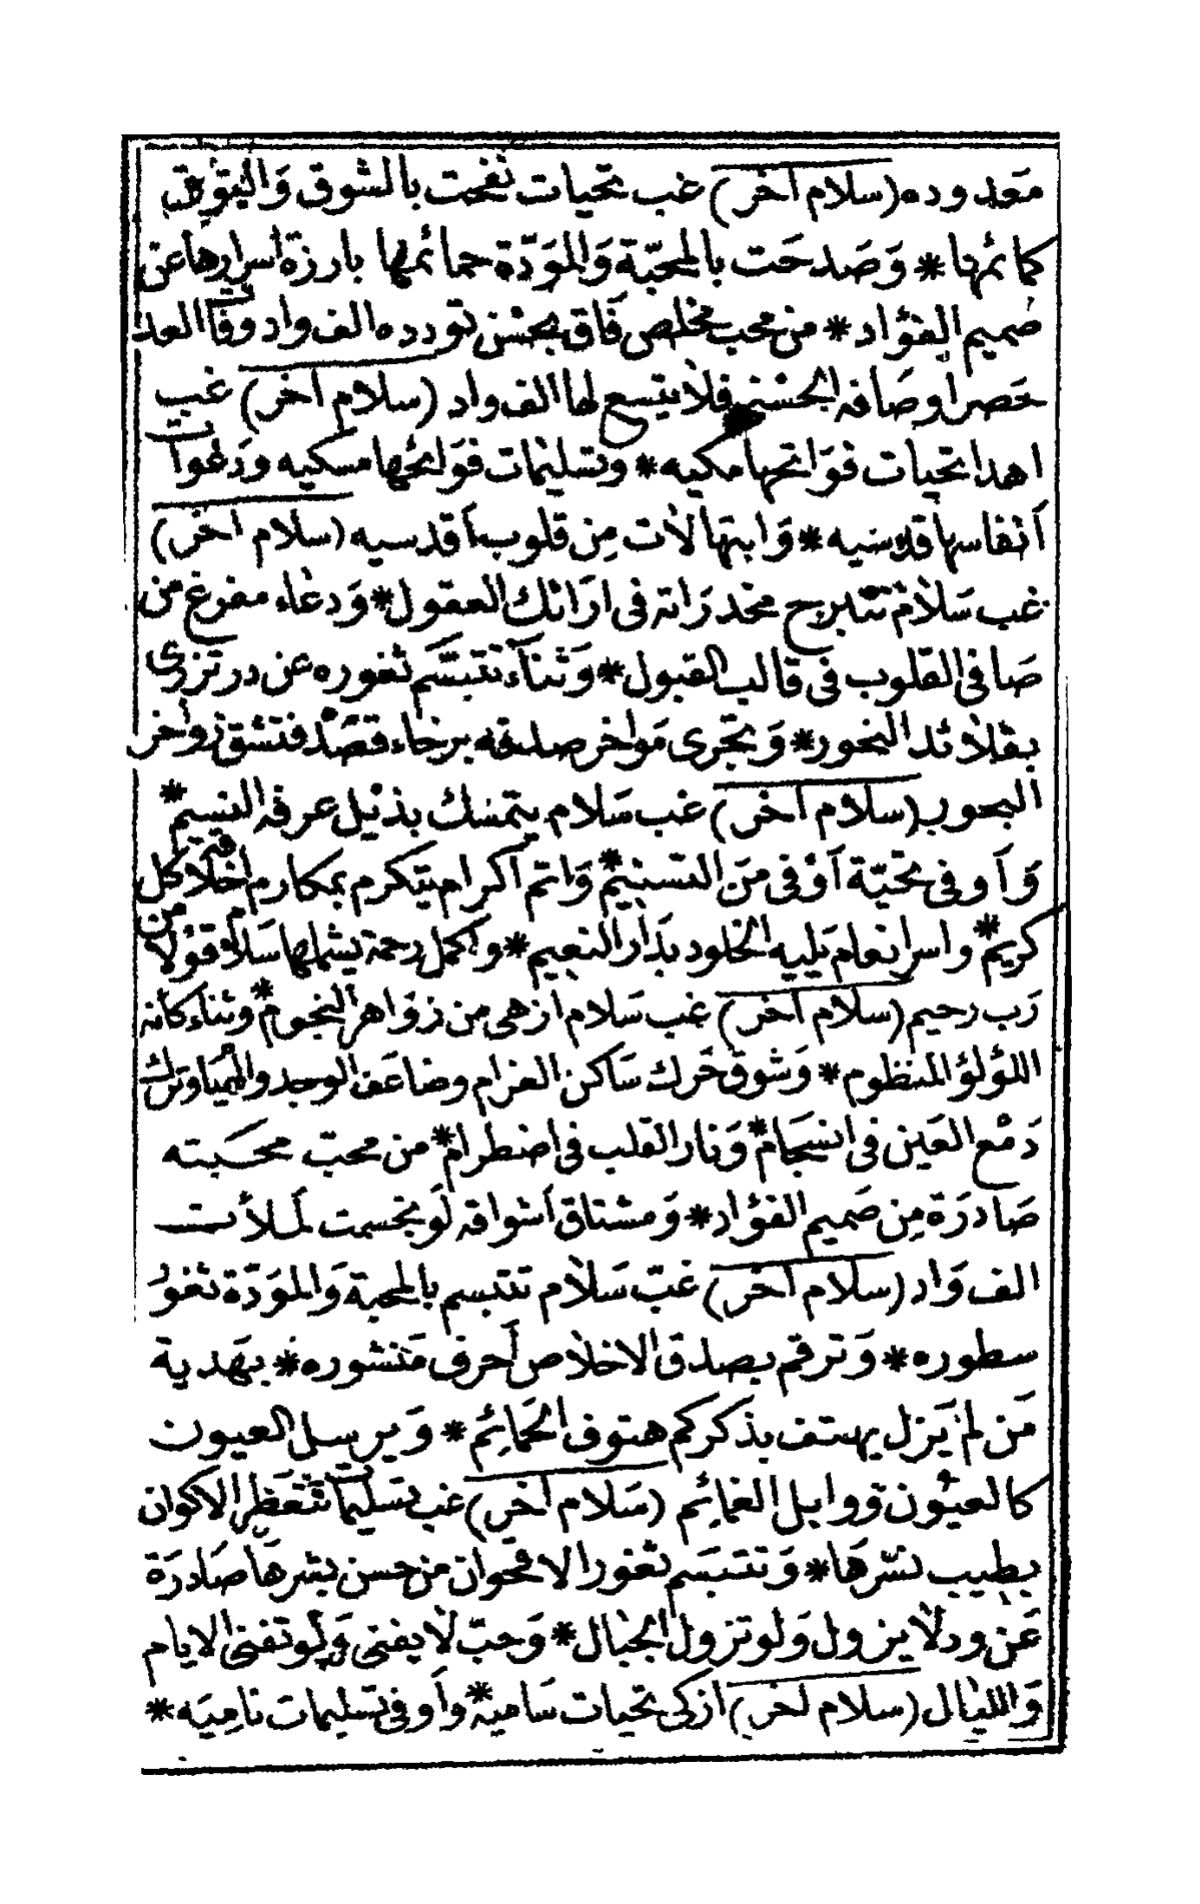 معدوده (سلام آخر) غب تحيات نفحت بالشوق وَالتوق
كمائمها * وَصَدحَت بالمحبّة وَالموَدّة حمائمها بارزة أسرارها عن
صميم الفؤاد * من محب مخلص فَاق بحسْن تودده الف واد وفاقت العد
حَصر اوصَافه الحسْنى فلا يتسع لها الف واد (سلام آخر) غب
اهدا تحيات فوَاتحها مكيه * وتسليمات فوَائحها مسكيه ودَعْوات
أنفاسها قدسيه * وَابتهالات مِن قلوب أقدسيه (سلام آخر)
غب سَلام تتبرج مخدرَاته فى ارَائك العقول * وَدعَاء مفرغ من
صَافى القلوب فى قالب القبول * وَثناَء تتبسَّم ثغوره عن در تزرى
بقلائد النحور * وَتجرى موَاخر صدقه برخاء قصْد فتشق زواخر
البحور (سلام آخر) غب سَلام يتمسَّك بذيْل عرفه النسيم *
وَأوفى تحيّة أوْفى مِنَ التسنيم * وَاتم اكرام يتكرم بمكارم اخلاقه كل
كريم * واسر انعام يَليه الخلود بدَار النعيم * واكمل رحمة يشملها سَلام قوْلا من
رَب رحيم (سلام آخر) غب سَلام ازهى من زوَاهر النجوم * وثناء كأنه
اللؤلؤ المنظوم * وَشوق حَرك سَاكن الغرام وضاعَف الوجد والهيام وترك
دَمْع العَين فى انسجَام * وَنار القلب فى اضطرام * من محبّ محَبته
صَادرَة مِن صَميم الفؤاد * وَمشتاق أشواقه لَو تجسمت لملأت
الف وَاد (سلام آخر) غبّ سَلام تتبسم بالمحبة وَالموَدّة ثغور
سطوره * وَترقم بصدق الاخلاص أحرف مَنشوره * بهَدية
مَن لم يَزل يهتف بذكركم هتوف الحَمائم * وَيرسل العيون
كالعيُون ووابل الغمائم (سَلام آخر) غب تسليمات تتعَطر الاكوان
بطيب نشرهَا * وَتتبسَم ثغور الاقحوان من حسن بشرهَا صَادرَة
عَن ود لا يزول وَلو تزول الجبَال * وَحبّ لا يفنى وَلو تفنى الايام
وَالليَال (سلام آخر) ازكى تحيات سَامية * وأوفى تسليمات نامِيَه *